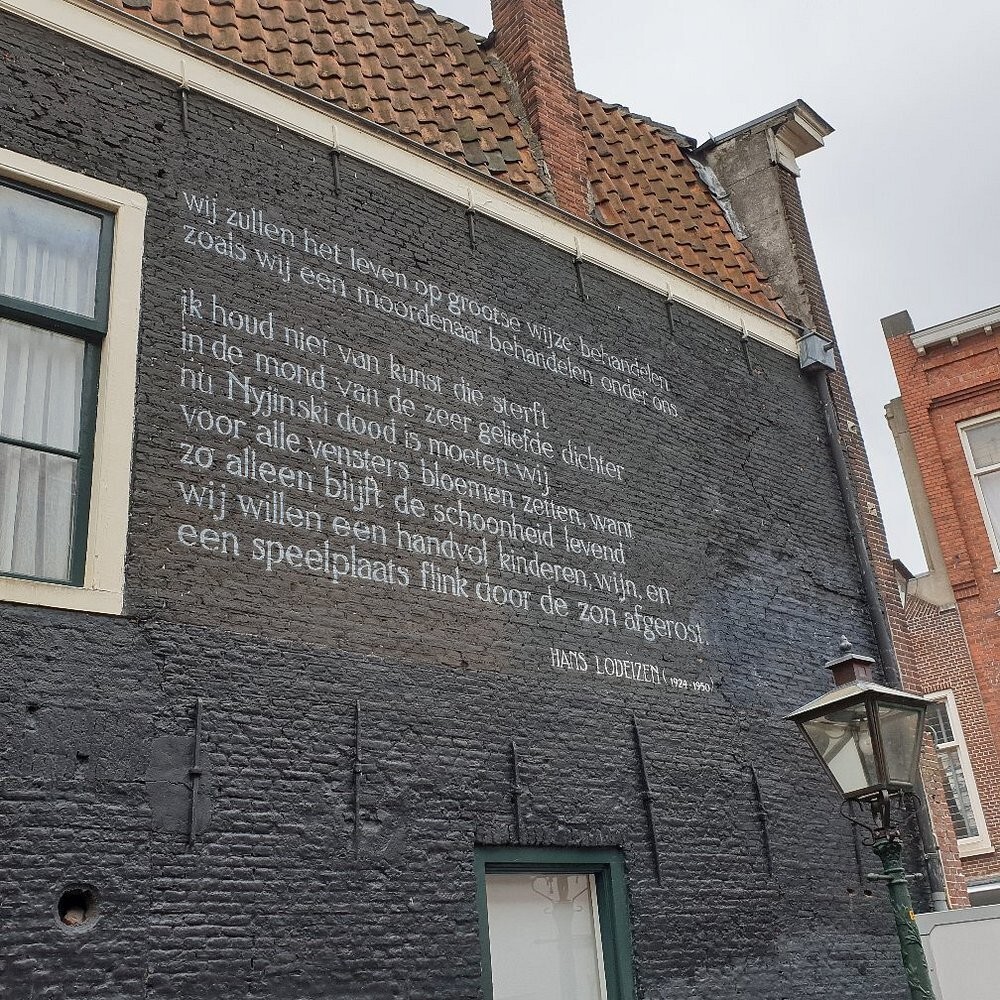 wij zullen het leven op grootse wijze behandelen
zoals wij een moordenaar behandelen onder ons
ik houd niet van kunst die sterft
in de mond van de zeer geliefde dichter
nu Nyjinski dood is moeten wij
voor alle vensters bloemen zetten, want
zo alleen blijft de schoonheid levend
wij willen een handvol kinderen, wijn, en
een speelplaats flink door de zon afgerost.
HANS LODEIZEN (1924-1950)